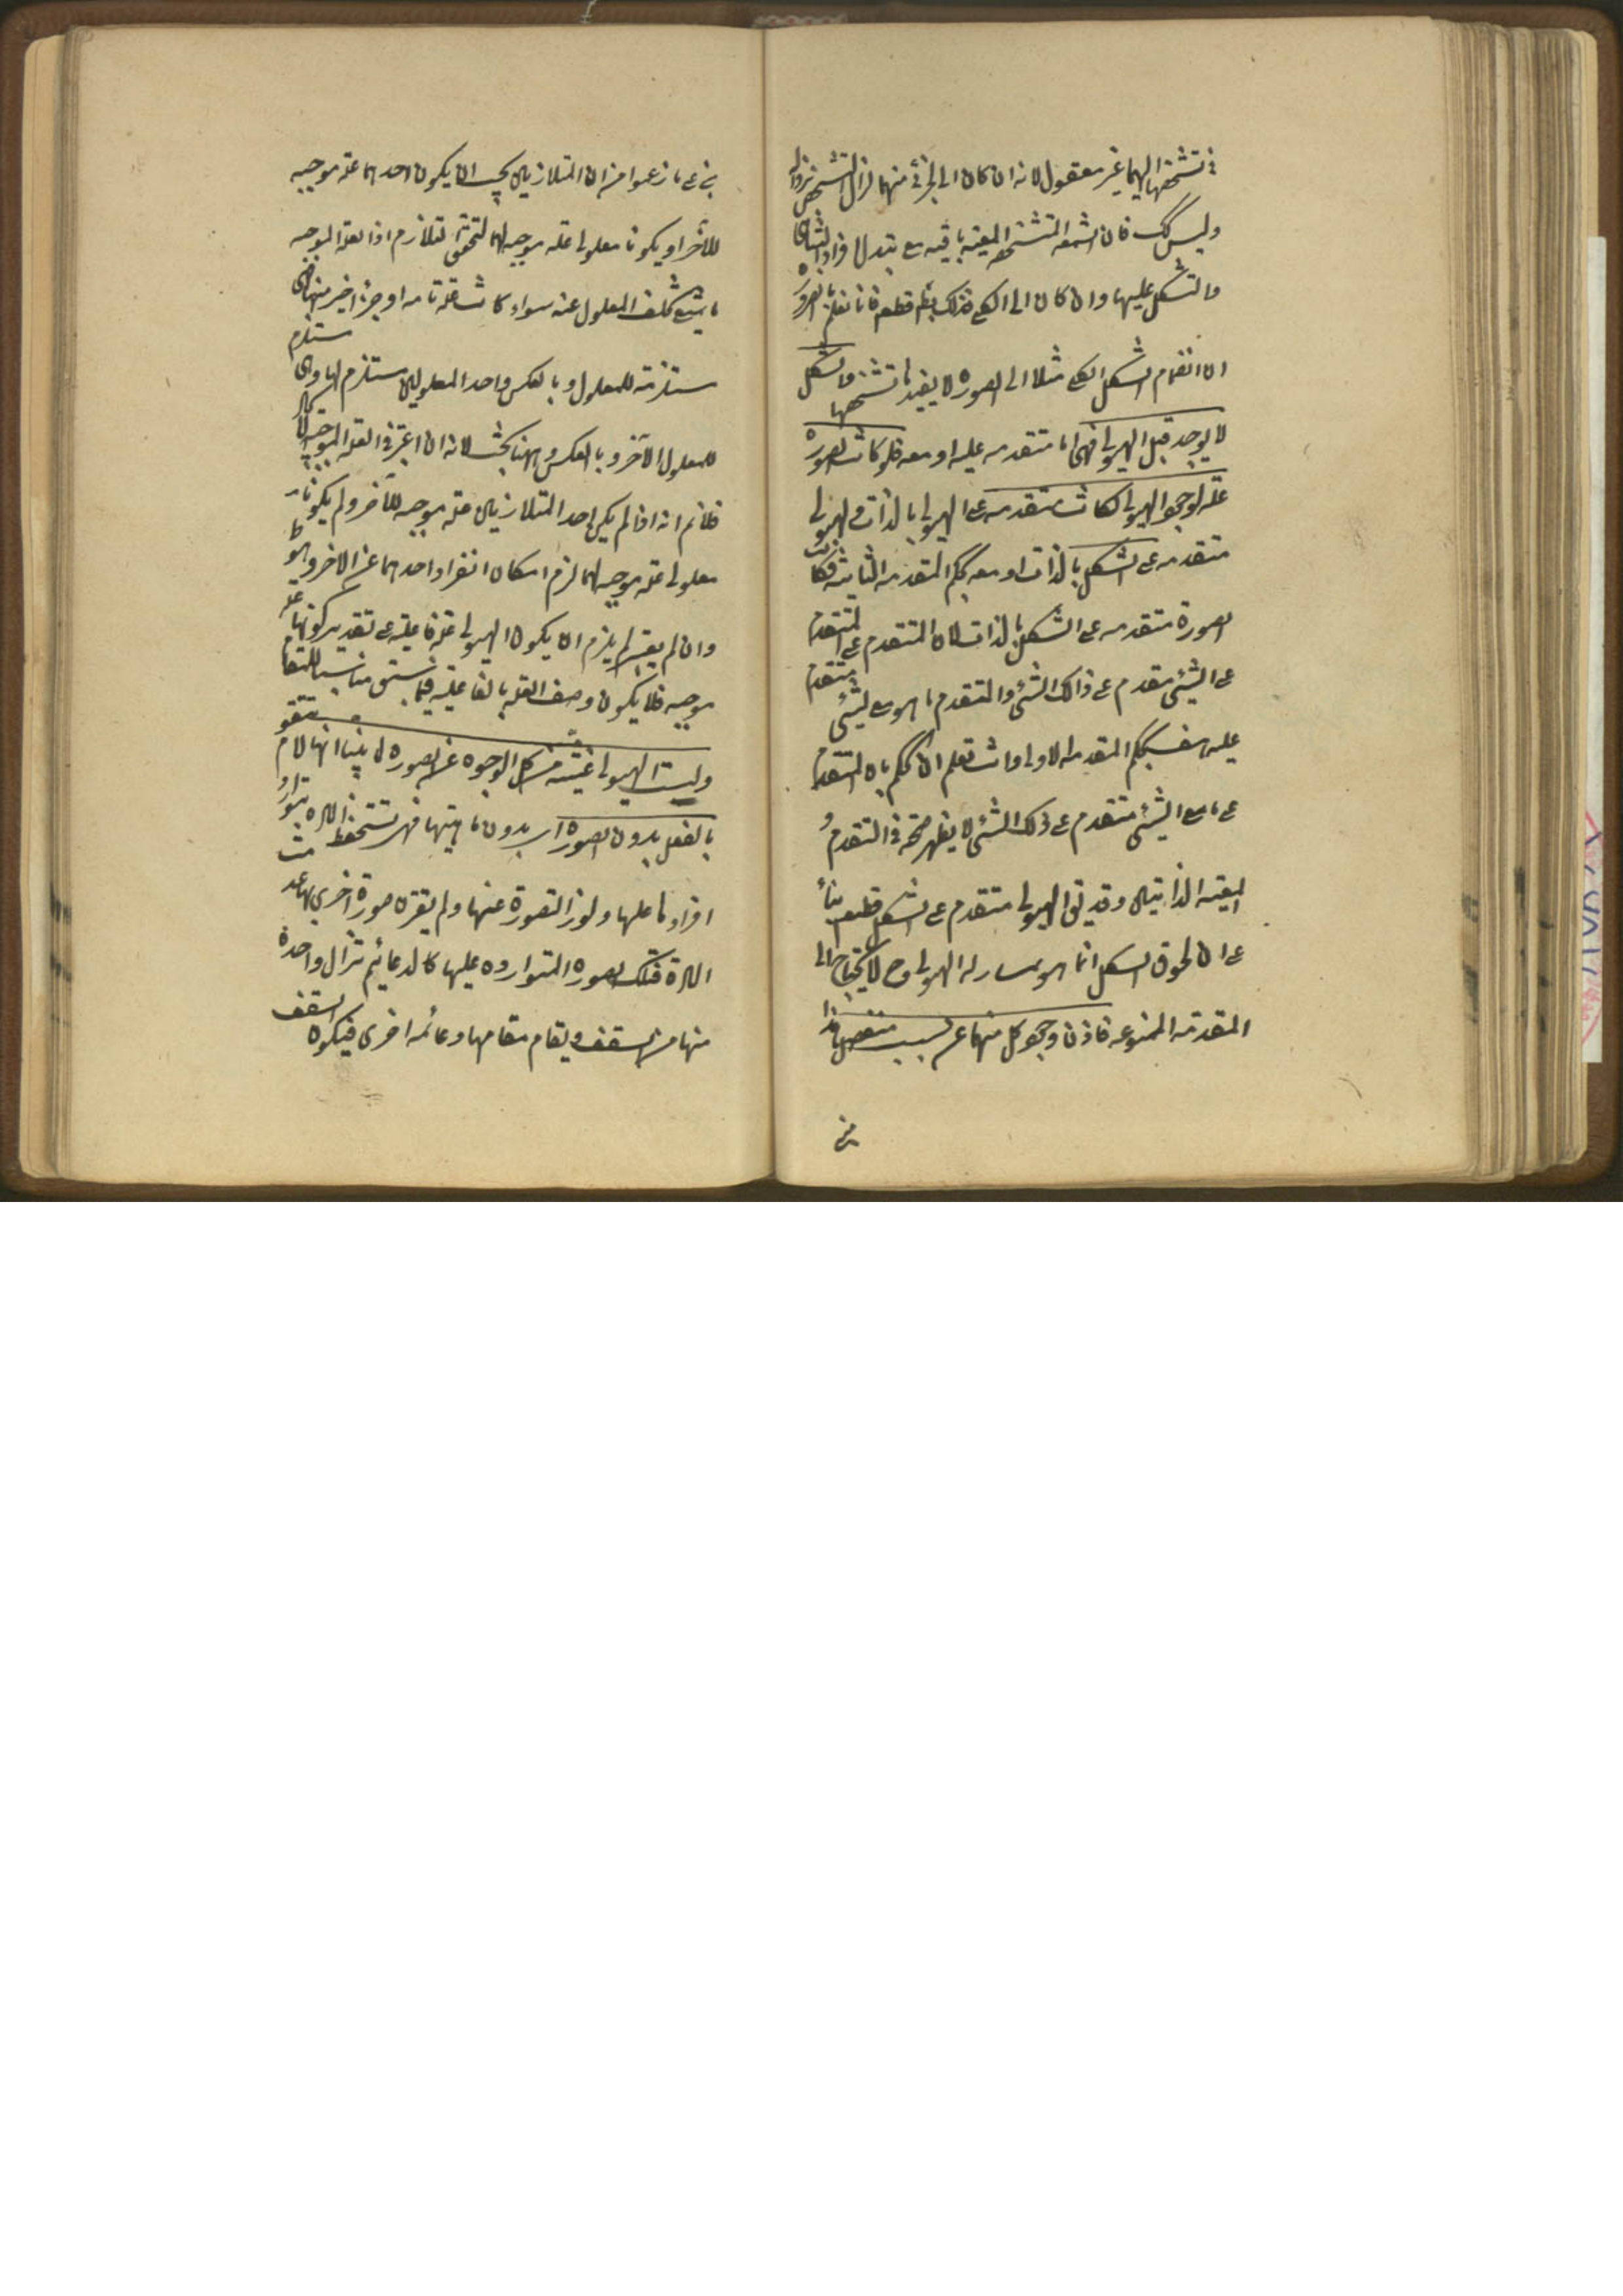 في تشخصها اليهما غير معقول لانه ان كان الى الجزئى منهما لزال التشخص بزواله
وليس كك فان الشمعة المتشخصة المعينة باقية مع تبدل افراد التناهى
والتشكل عليها وان كان الى الكلى فذلك بط قطعا فانا نعلم بالضرورة
ان انضمام الشكل الكلى مثلا الى الصورة لا يفيد تشخصها والشكل
لا يوجد قبل الهيولى فهى اما متقدمه عليه او معه فلو كانت الصورة
علة لوجود الهيولى لكانت متقدمه على الهيولى بالذات والهيولى
متقدمه على الشكل بالذات او معه بحكم المقدمه الثانية فكانت
الصورة متقدمه على الشكل بالذات لان المتقدم على المتقدم
على الشئ متقدم على ذالك الشئ والمتقدم على ما هو مع الشئ متقدم
عليه هف بحكم المقدمه الاولى وانت تعلم ان الحكم بان المتقدم
على ما مع الشئ متقدم على ذلك الشئ لا يظهر صحته فى التقدم و
المعية الذاتيين وقد يق الهيولى متقدم على الشكل قطعا بناء
على ان لحوق الشكل انما هو بمشاركة الهيولى وح لا يحتاج الى
المقدمه الممنوعه فاذن وجود كل منهما عن سبب منفصل هذا
من
بنى على ما زعموا من ان المتلازمين يجب ان يكون احدهما علة موجبه
للآخر او يكونا معلولى علة موجبه لهما لتحقق التلازم اذ العلة الموجبه
ما يمتنع تخلف المعلول عنه سواء كانت علة تامه او جزءا اخيرا منها فهى
مستلزمة للمعلول وبالعكس واحد المعلولين مستلزم لها وهى مستلزم
للمعلول الآخر وبالعكس وههنا بحث لانه ان اعتبر فى العلة الموجبه
فلا نم انه اذا لم يكن احد المتلازمين علة موجبه للآخر ولم يكونا
معلولى علة موجبه لهما لزم امكان انفراد احدهما عن الاخر وهو ظ
وان لم يعتبر لم يلزم ان يكون الهيولى علة فاعلية على تقدير كونها علة
موجبه فلا يكون وصف العلة بالفاعلية فيما سبق مناسبا للمقام
وليست الهيولى غنية من كل الوجوه عن الصورة لما بينا انها لا تقوم
بالفعل بدون الصورة اى بدون ماهيتها فهى تستحفظ المادة بتوارد
افرادها عليها ولو زالت صورة عنها ولم يقترن صورة اخرى بها عدمت
المادة فتلك الصورة المتواردة عليها كالدعائيم تزال واحدة
منها من السقف ويقام مقامها دعائمه اخرى فيكون السقف